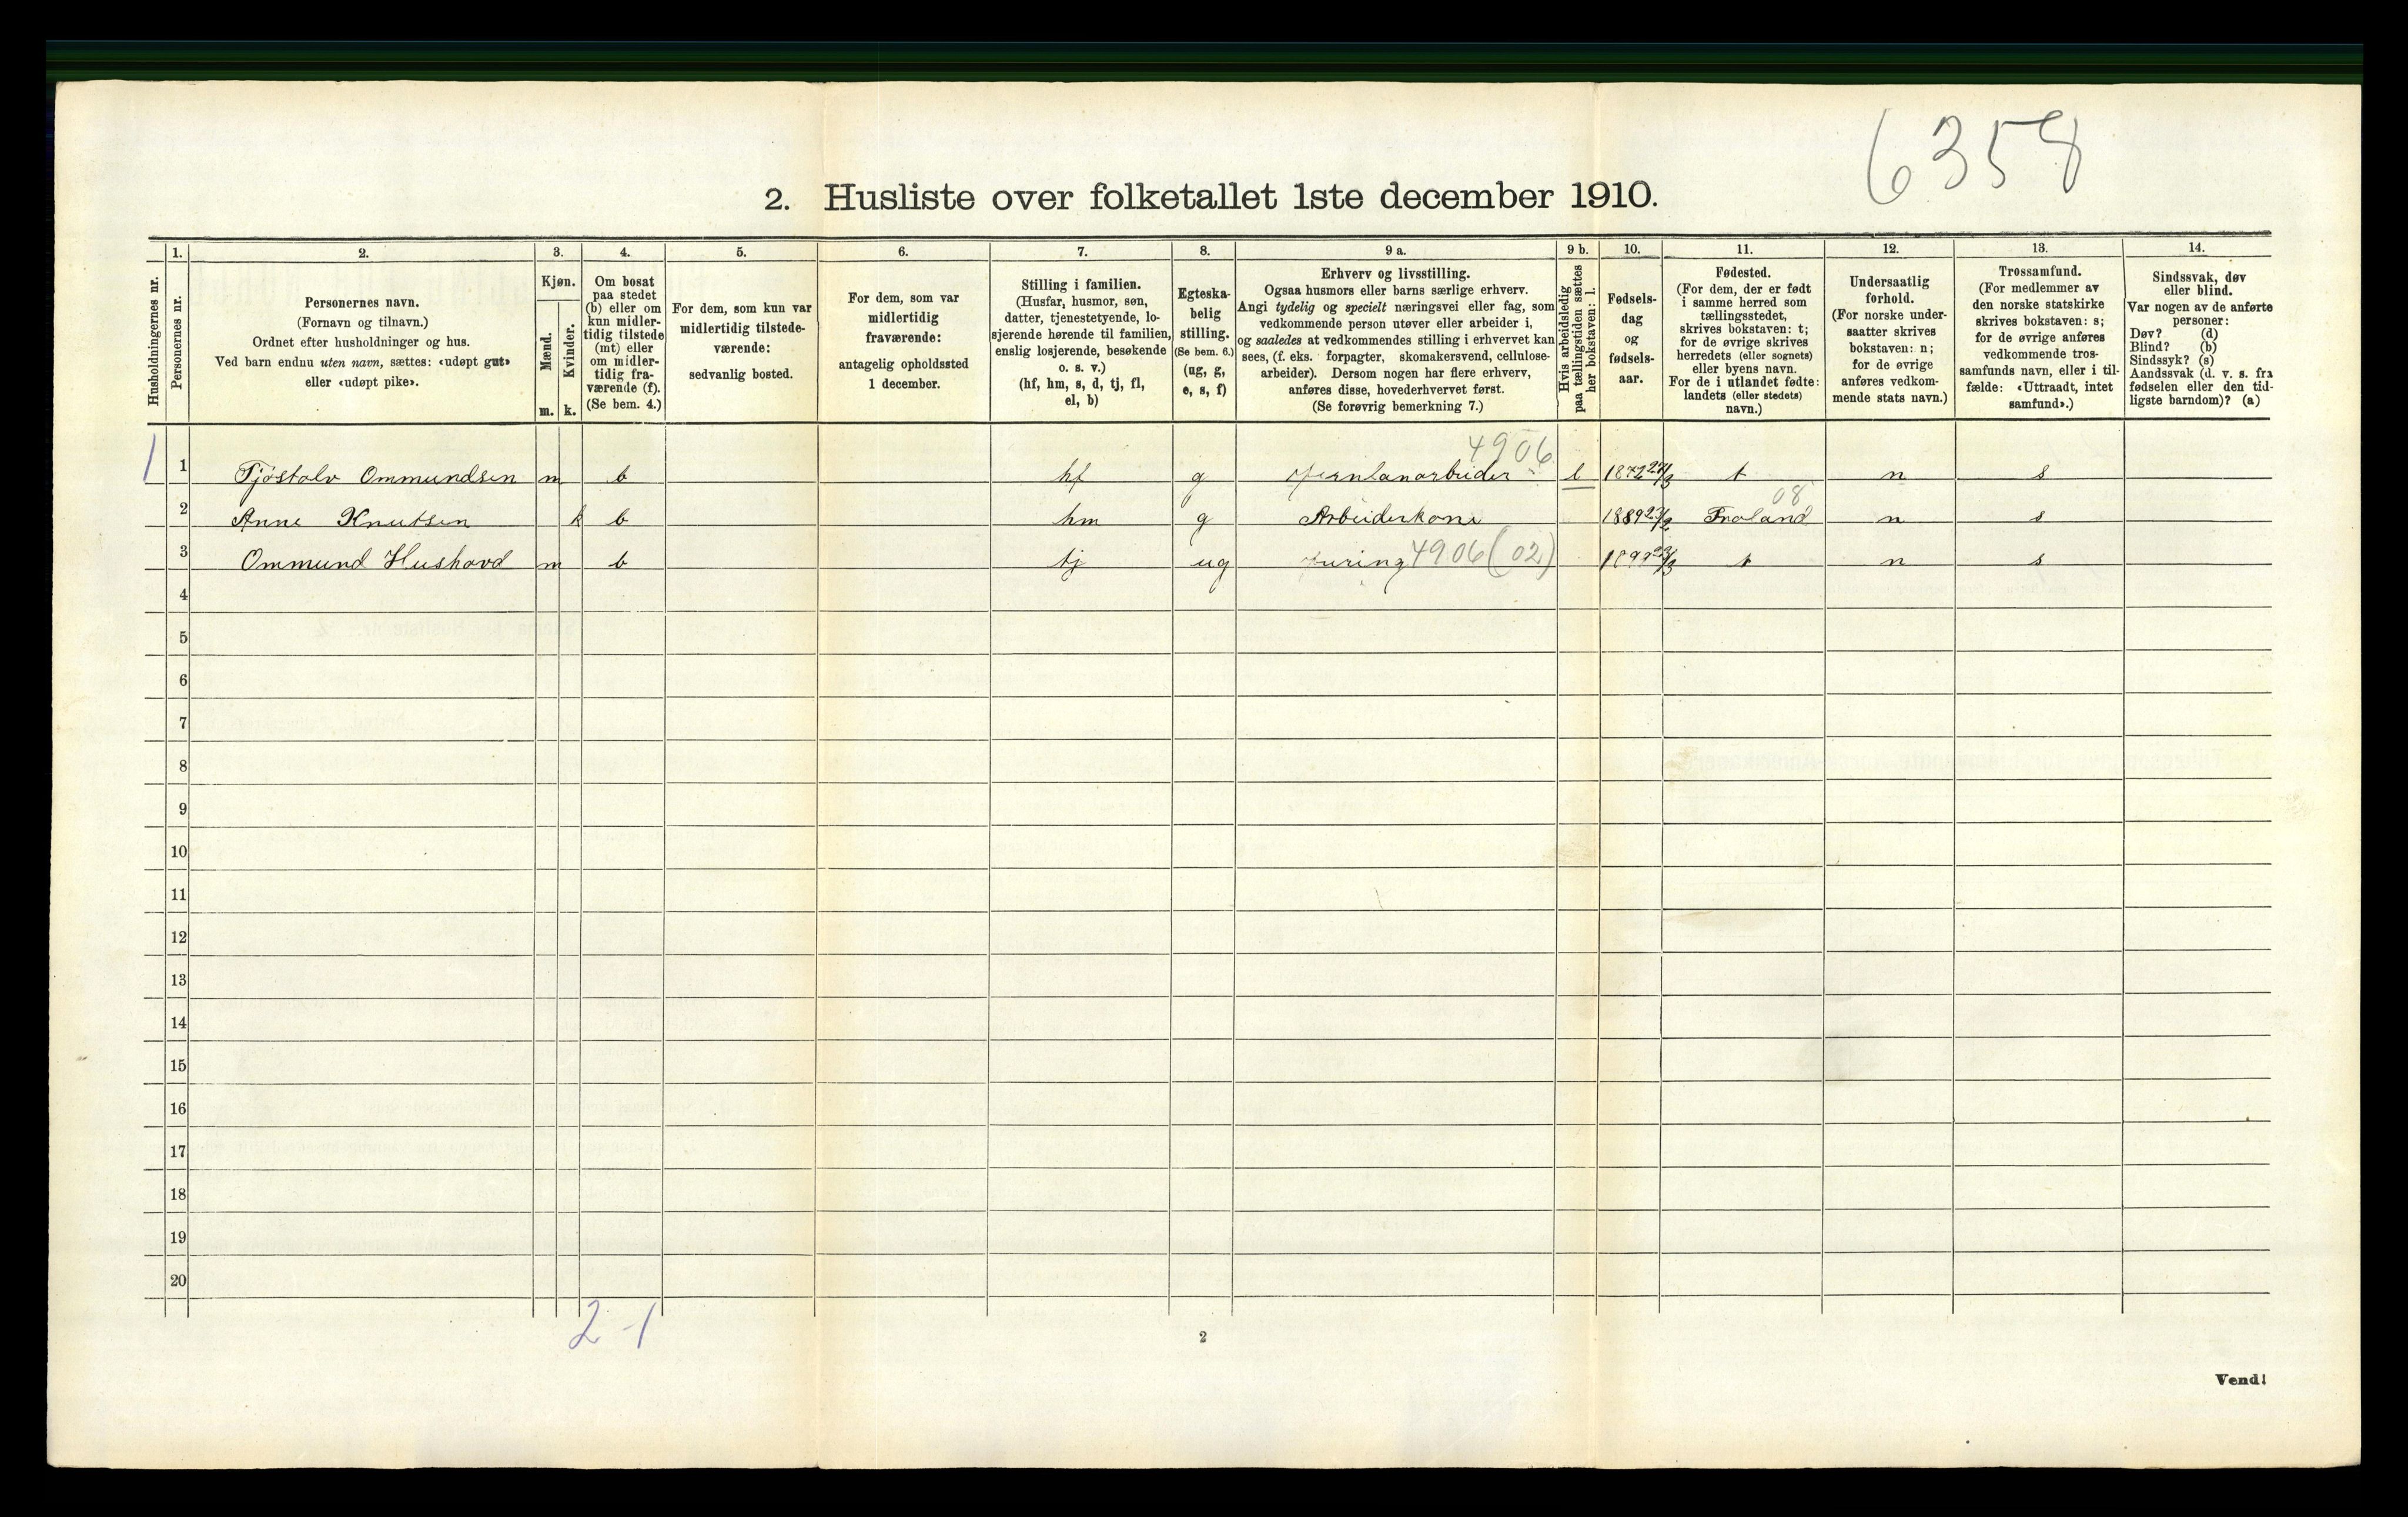 6358
2. Husliste over folketallet 1ste december 1910.
Husholdningernes nr.
1.
Personernes nr.
2.
Personernes navn.
(Fornavn og tilnavn.)
Ordnet efter husholdninger og hus.
Ved barn endnu uten navn, sættes: «udøpt gut»
eller «udøpt pike».
3.
Kjøn.
Mænd.
Kvinder.
m. k.
4.
Om bosat
paa stedet
(b) eller om
kun midler-
tidig tilstede
(mt) eller
om midler-
tidig fra-
værende (f).
(Se bem. 4.)
5.
For dem, som kun var
midlertidig tilstede-
værende:
sedvanlig bosted.
6.
For dem, som var
midlertidig
fraværende:
antagelig opholdssted
1 december.
7.
Stilling i familien.
(Husfar, husmor, søn,
datter, tjenestetyende, lo-
sjerende hørende til familien,
enslig losjerende, besøkende
o. s. v.)
(hf, hm, s, d, tj, fl,
el, b)
8.
Egteska-
belig
stilling.
(Se bem. 6.)
(ug, g,
e, s, f)
9 a.
Erhverv og livsstilling.
Ogsaa husmors eller barns særlige erhverv.
Angi tydelig og specielt næringsvei eller fag, som
vedkommende person utøver eller arbeider i,
og saaledes at vedkommendes stilling i erhvervet kan
sees, (f. eks. forpagter, skomakersvend, cellulose-
arbeider). Dersom nogen har flere erhverv,
anføres disse, hovederhvervet først.
(Se forøvrig bemerkning 7.)
9 b.
Hvis arbeidsledig
paa tællingstiden sættes
her bokstaven: l.
10.
Fødsels-
dag
og
fødsels-
aar.
11.
Fødested.
(For dem, der er født
i samme herred som
tællingsstedet,
skrives bokstaven: t;
for de øvrige skrives
herredets (eller sognets)
eller byens navn.
For de i utlandet fødte:
landets (eller stedets)
navn.)
12.
Undersaatlig
forhold.
(For norske under-
saatter skrives
bokstaven: n;
for de øvrige
anføres vedkom-
mende stats navn.)
13.
Trossamfund.
(For medlemmer av
den norske statskirke
skrives bokstaven: s;
for de øvrige anføres
vedkommende tros-
samfunds navn, eller i til-
fælde: «Uttraadt, intet
samfund».)
14.
Sindssvak, døv
eller blind.
Var nogen av de anførte
personer:
Døv? (d)
Blind? (b)
Sindssyk? (s)
Aandssvak (d. v. s. fra
fødselen eller den tid-
ligste barndom)? (a)
4906
1 1 Tjøstolv Ommundsen m b hf g Jernbanarbeider l 1872 27/3 t n s
08
2 Anne Knutsen k b hm g Arbeiderkone 1889 Froland n s
3 Ommund Hushovd m b tj ug 4906 (02) t n s
4
5
6
7
8
9
10
11
12
13
14
15
16
17
18
19
20
2-1
2
Vend!